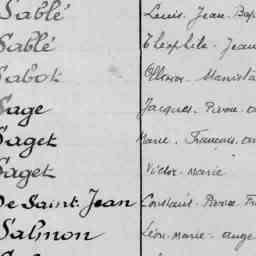 Sablé Louis. Jean. Bap
Sablé Théophile. Jean
Sabot Stanisla
Sage Jacques. Pierre. a
Saget Marie. Francois. an
Saget Victor. Marie
De Saint. Jean Constant. Pierre. Fr
Salmon Léon. Marie. ange